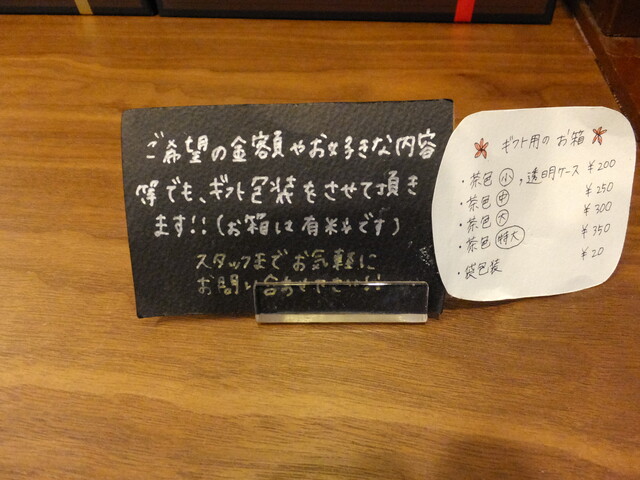 ご希望の金額やお好きな内容
等でも、ギフト包装をさせて頂き
ます!!(お箱は有料です)
スタッフまでお気軽に
お問い合わせ下さい!!
ギフト用のお箱
・茶色(小),透明ケース ¥200
・茶色(中) ¥250
・茶色(大) ¥300
・茶色(特大) ¥350
・袋包装 ¥20